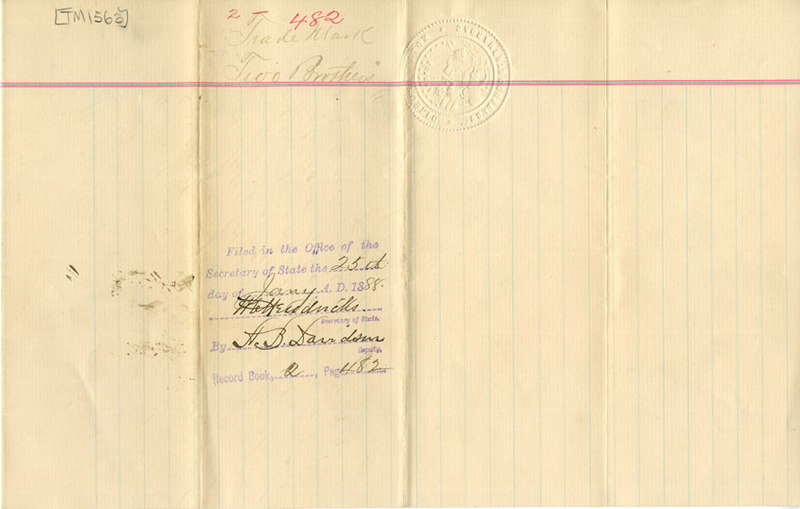 [TM1563]
2 - 482
Trade Mark
"Two Brothers"
Filed in the Office of the
Secretary of State the 25th
day of Jany A. D. 1888.
W C Hendricks
Secretary of State.
By A. B. Davidson
Deputy.
Record Book, 2, Page 482